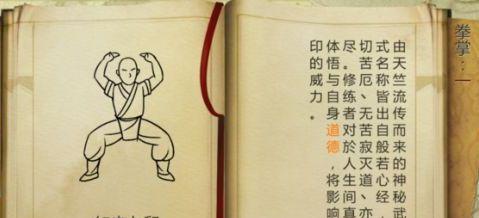 拳掌：一
由天竺流传而来的神秘武
式名称皆出自般若心经，
切苦厄、无苦寂灭道、亦
尽。修炼者对於人生间真
体悟与自身道德，将影响
印的威力。